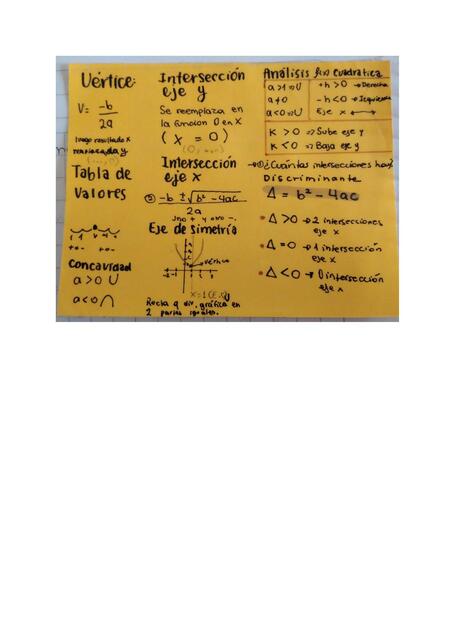 Vértice:
V= -b
2a
luego resultado x
reemplazada y
Tabla de
Valores
Concavidad
a>0 U
a<0 ∩
Intersección
eje y
Se reemplaza en
la función 0 en X
( x = 0 )
Intersección
eje X
② -b ±√b² -4ac
2a
uno + y otro -.
Eje de simetría
vértice
x=1
Recta q div. gráfica en
2 partes iguales.
Análisis f(x) cuadrática
a>1 ⇒ U
a≠0
a<0 ⇒ U
+h>0 → Derecha
-h<0 → Izquierda
Eje x
K >0 ⇒ Sube eje y
K <0 ⇒ Baja eje y
→①¿Cuántas intersecciones hay?
Discriminante
Δ = b² - 4ac
• Δ >0 → 2 intersecciones
eje x
• Δ =0 → 1 intersección
eje x
• Δ <0 → 0 intersección
eje x